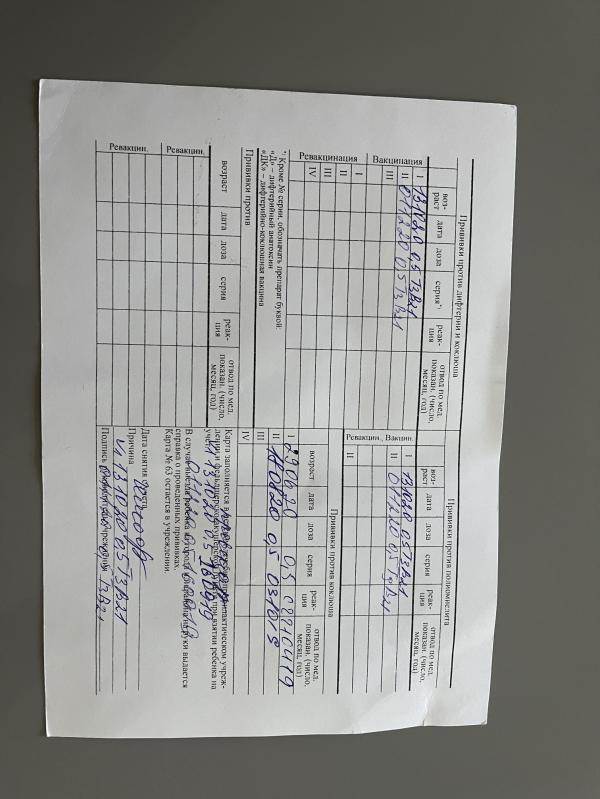 Прививки против дифтерии и коклюша
возраст дата доза серия*) реакция отвод по мед. показан. (число, месяц, год)
Вакцинация
I 13 10 20 0,5 T3B21
II 01 12 20 0,5 T3B21
III
Ревакцинация
I
II
III
IV
*) Кроме № серии, обозначать препарат буквой:
«Д» – дифтерийный анатоксин
«ДК» – дифтерийно-коклюшная вакцина
Прививки против
возраст дата доза серия реакция отвод по мед. показан. (число, месяц, год)
Ревакцин.
Ревакцин.
Прививки против полиомиелита
возраст дата доза серия реакция отвод по мед. показан. (число, месяц, год)
Вакцин.
I 13 10 20 0,5 T3B21
II 01 12 20 0,5 T3B21
Ревакцин.
II
Прививки против коклюша
возраст дата доза серия реакция отвод по мед. показан. (число, месяц, год)
I 29 06 20 0,5
II 0,5
III
IV
Карта заполняется в профилактическом учреждении
при взятии ребенка на учет.
В случае выезда ребенка из города на руки выдается
справка о проведенных прививках.
Карта № 63 остается в учреждении.
Дата снятия с учета
Причина
V1 13 10 20 0,5 T3B21
Подпись